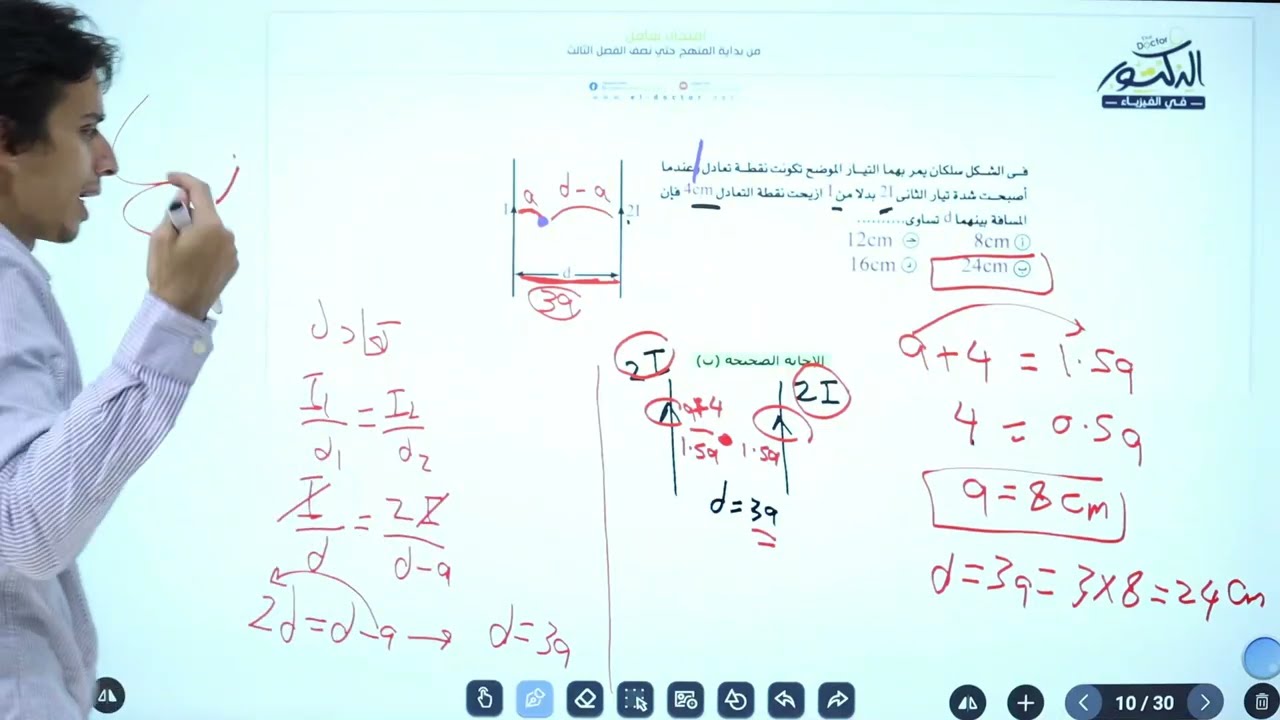 امتحان شامل
من بداية المنهج حتي نصف الفصل الثالث
The Doctor
الدكتور
في الفيزياء
فى الشكل سلكان يمر بهما التيار الموضح تكونت نقطة تعادل عندما
أصبحت شدة تيار الثانى 2I بدلا من I ازيحت نقطة التعادل 4cm فإن
المسافة بينهما d تساوى..........
أ 8cm
جـ 12cm
ب 24cm
د 16cm
a
d-a
I
2I
d
3a
الاجابه الصحيحه (ب)
I₁/d₁ = I₂/d₂
I/d = 2I/d-a
2d=d-a → d=3a
2I
2I
a+4
1.5a
1.5a
d=3a
a+4 = 1.5a
4 = 0.5a
a=8cm
d=3a=3×8=24cm
10/30